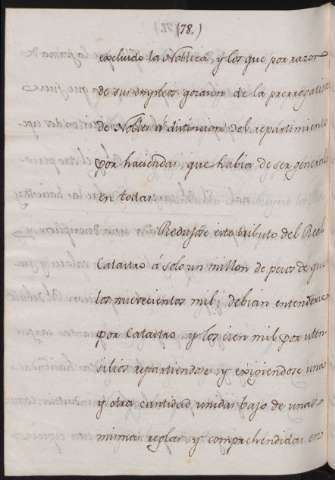 (78.)
excluido la Nobleza, y los que por razon
de sus empleos gozaron de la prerrogativa
de Nobles à distincion del repartimiento
por haciendas, que habia de ser general
en todas.
Redujose este tributo del Real
Catastro á solo un millon de pesos de que
los nuevecientos mil, debian entenderse
por Catastro y los cien mil por uten-
silios repartiendose y exigiendose una
y otra cantidad, unidas bajo de unas
mismas reglas y comprehendidas en